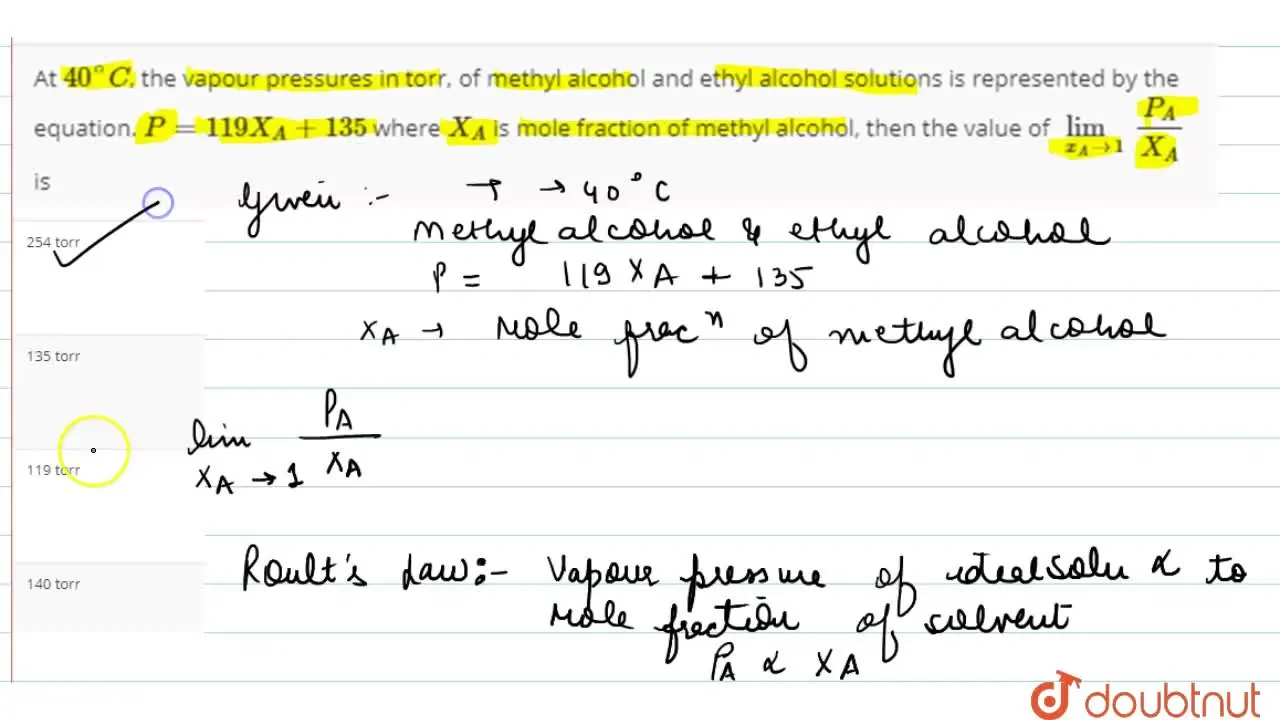 At 40°C, the vapour pressures in torr, of methyl alcohol and ethyl alcohol solutions is represented by the
equation. P = 119X_A + 135 where X_A is mole fraction of methyl alcohol, then the value of lim_{x_A→1} P_A/X_A
is
Given :- T → 40°C
methyl alcohol & ethyl alcohol
254 torr
P = 119 XA + 135
XA → Mole fracⁿ of methyl alcohol
135 torr
lim XA → 1 PA/XA
119 torr
Roult's Law:- Vapour pressure of ideal solu α to
140 torr
Mole fraction of solvent
PA α XA
doubtnut